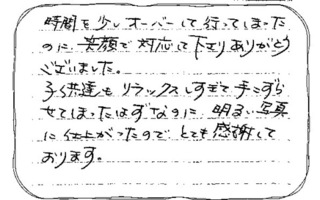 時間を少しオーバーして行ってしまった
のに、笑顔で対応して下さりありがとう
ございました。
子供達もリラックスしすぎて手こずら
せてしまったはずなのに、明るい写真
に仕上がったので とても感謝して
おります。